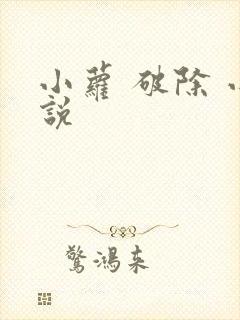 小蘿 破除 小
說
驚鴻來